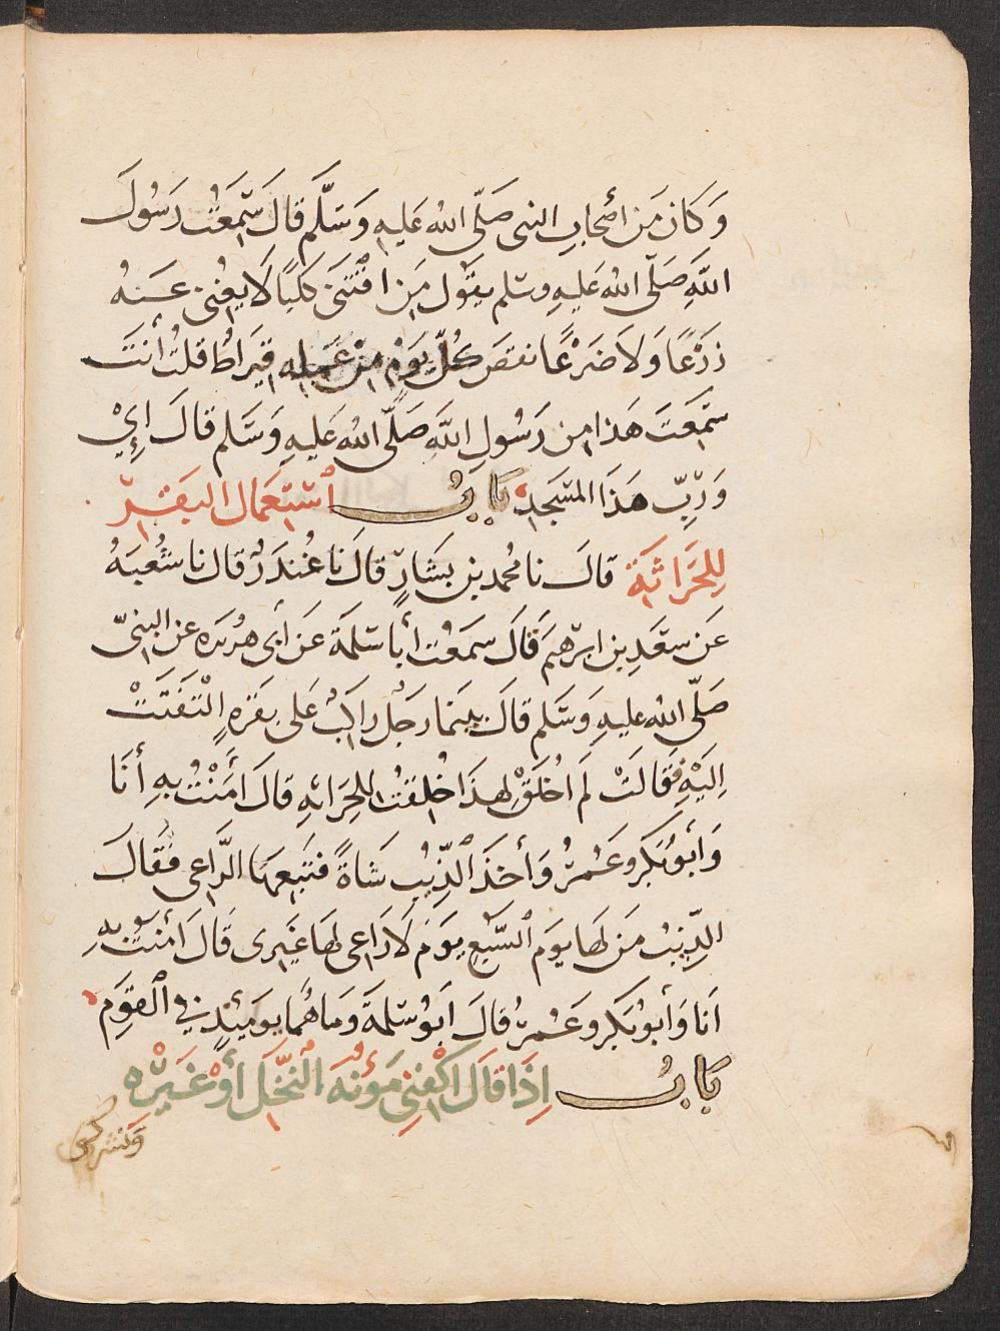 وَكَانَ مَن اَصْحَابِ النبى صَلّى الله عَليهِ وَسَلَّم قَالَ سَمَعْتُ رَسُولَ
اللهِ صَلّى الله عَليهِ وسلم يقَول مَنِ اقْتَنَى كَلبًا لَا يغْنى عَنهُ
زَرْعًا وَلاَ ضَرْعًا نقصَ كلّ يَوْمٍ مِنْ عَمَلِهِ قيَراطٌ قلتُ أنتَ
سَمَعتَ هَذا مِن رَسُولِ اللهِ صَلّى الله عَليهِ وَسَلم قالَ اِىْ
وَرَبّ هَذَا المسَجد بَابُ اسْتِعَمال البَقَر
لِلحَرَاثَة قالَ نا محمد بن بَشَارٍ قالَ نَا غُندَرٌ قال نا شُعبَهُ
عَن سعَدِ بن ابرهيَم قَالَ سمَعْت أبا سَلمَة عَن أبى هريَره عن النبىّ
صَلّى الله عليهِ وَسَلم قالَ بينَما رجَل راكبٌ عَلى بقَرَهٍ الْتَفَتَتْ
اِليَهِ فقَالَتْ لَم اُخلَقْ لهذَا خُلِقتُ للحِرَاثهِ قالَ اَمَنْتُ بهِ أنَا
وَأبُو بَكر وعَمُرُ وَأخَذَ الذّيبُ شَاةً فتَبَعهَا الرّاعى فقَالَ
الذّيبُ مَن لهَا يوَم السَّبُعِ يوَم لَا رَاعى لهَا غَيرى قَالَ اَمنتُ بهِ
اَنا وَأبوُ بَكر وعَمُرُ قالَ اَبُو سَلمَةَ وَمَا هُمَا يومَئِذٍ فِى القَوِم
بَابُ اِذَا قَالَ اكْفنِى مَؤنَهَ النّخل أوْ غَيَرْه
وَتشركنى